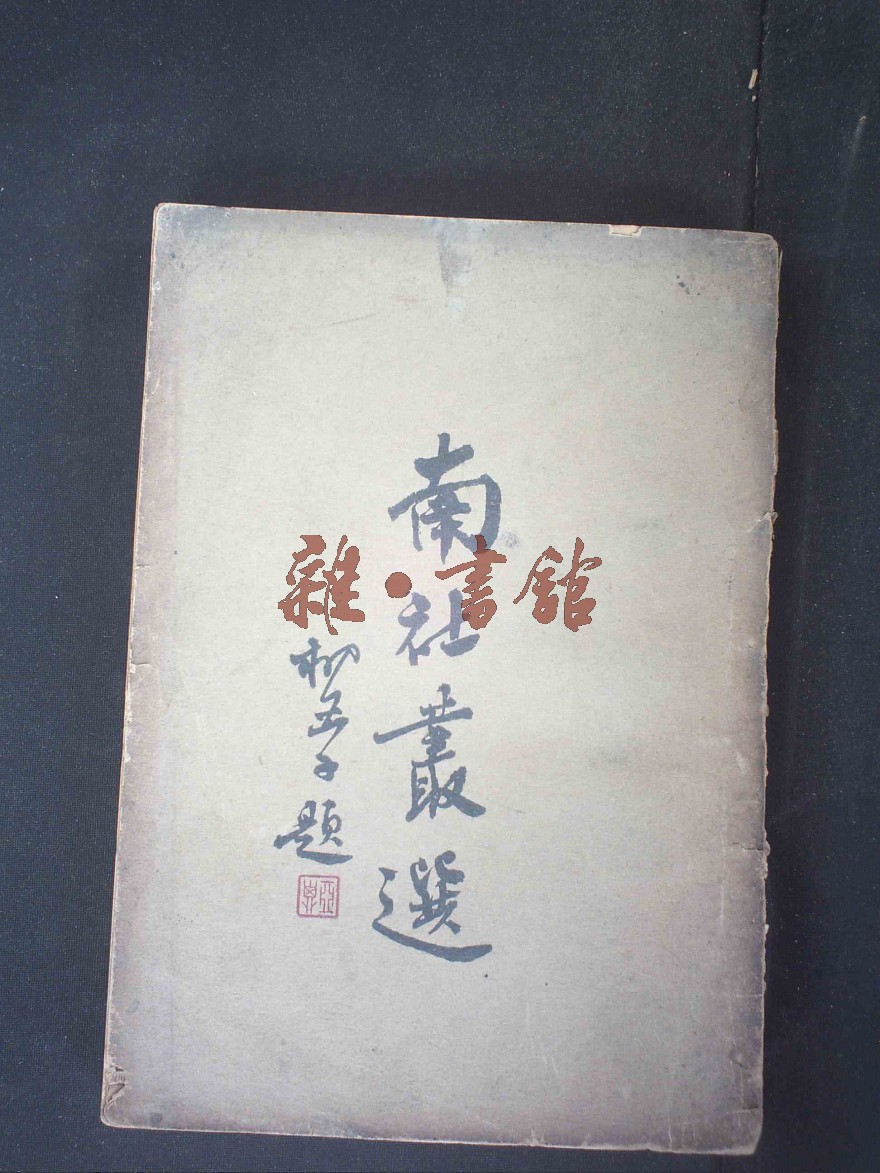 南社叢選
柳亞子題
雜·書館